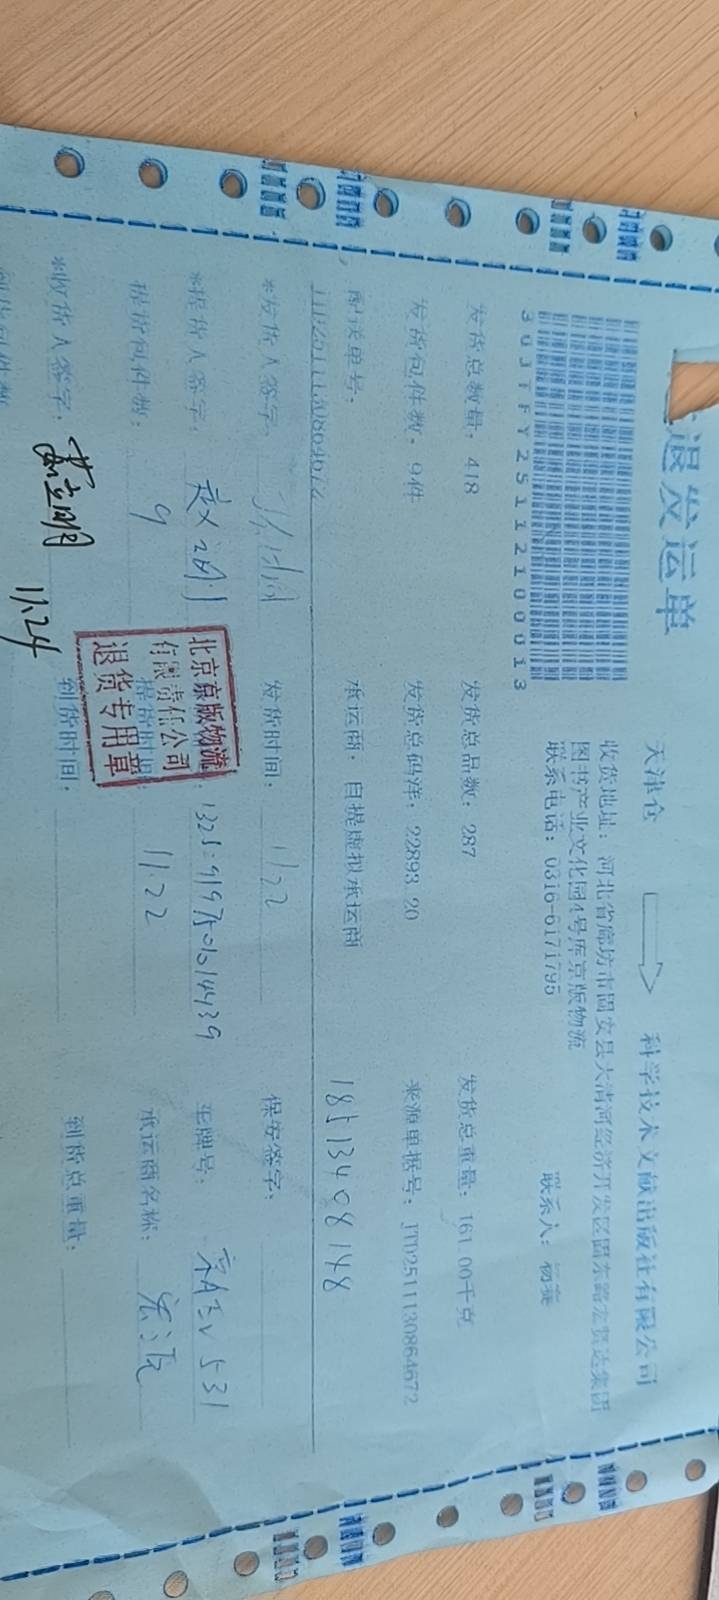 退发运单
天津仓 科学技术文献出版社有限公司
收货地址：河北省廊坊市固安县大清河经济开发区
图书产业文化园4号库京版物流
联系电话：0316-6171795 联系人：
30JTFY25112100013
发货总数量：418 发货总品数：287 发货总重量：161.00千克
发货包件数：9件 发货总码洋：22893.20 来源单据号：JTD2511130864672
配送单号： 承运商：自提虚拟承运商 18513408148
JTD2511130864672
*发货人签字： 发货时间：11.22 保安签字：
*提货人签字： 车牌号： 531
提货包件数：9 提货时间：11.22 承运商名称：
*收货人签字： 到货时间： 到货总重量：
11.24
北京京版物流
有限责任公司
退货专用章